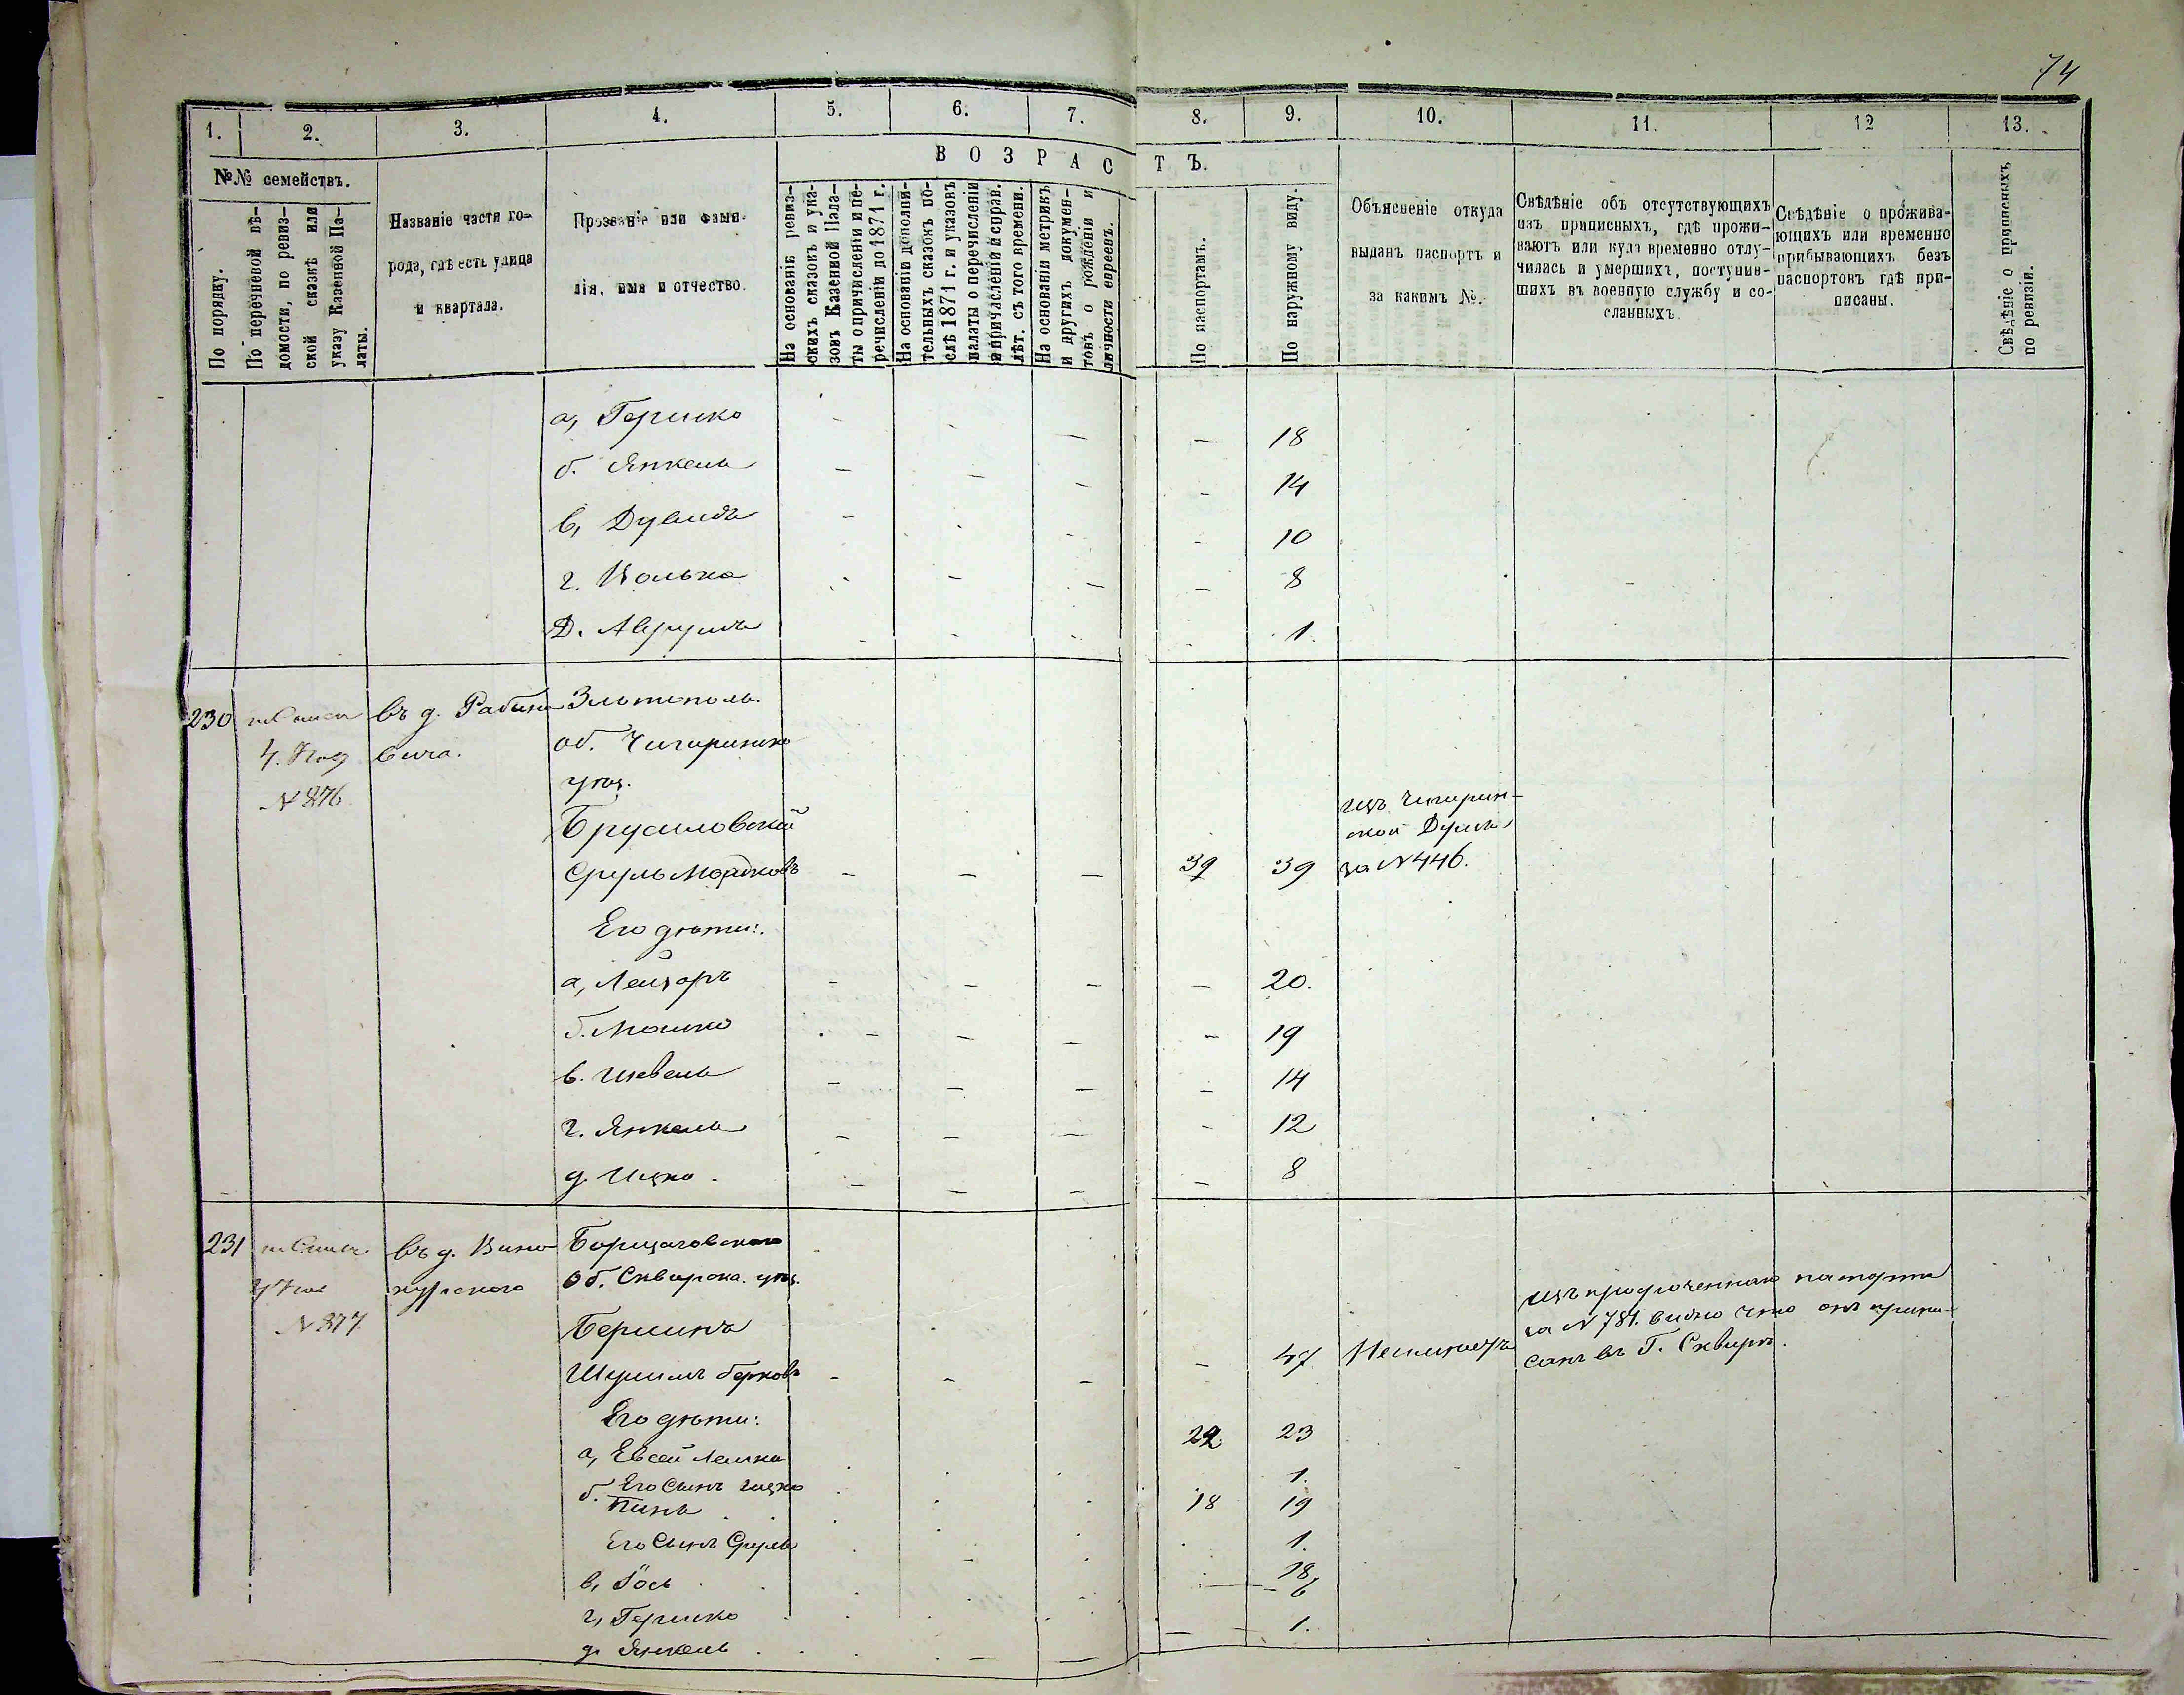 74
1. 2. 3. 4. 5. 6. 7. 8. 9. 10. 11. 12 13.
№№ семействъ.
По порядку.
По перечневой вѣ-
домости, по ревиз-
ской сказкѣ или
указу Казенной Па-
латы.
Названіе части го-
рода, гдѣ есть улица
и квартала.
Прозваніе или фами-
лія, имя и отчество.
ВОЗРАСТЪ.
На основаніи ревиз-
скихъ сказокъ и ука-
зовъ Казенной Пала-
ты о причисленіи и пе-
речисленіи до 1871 г.
На основаніи дополни-
тельныхъ сказокъ по-
слѣ 1871 г. и указовъ
палаты о перечисленіи
и причисленіи и справ.
лѣт. съ того времени.
На основаніи метрикъ
и другихъ докумен-
товъ о рожденіи и
личности евреевъ.
По паспортамъ.
По наружному виду.
Объясненіе откуда
выданъ паспортъ и
за какимъ №.
Свѣдѣніе объ отсутствующихъ
изъ приписныхъ, гдѣ прожи-
ваютъ или куда временно отлу-
чились и умершихъ, поступив-
шихъ въ военную службу и со-
сланныхъ.
Свѣдѣніе о прожива-
ющихъ или временно
прибывающихъ безъ
паспортовъ гдѣ при-
писаны.
Свѣдѣніе о приписныхъ
по ревизіи.
а, Гершко — — 18
б. Янкель — — — - 14
в, Дувидъ — - - 10
г. Волько - — — — 8
Д. Аврумъ - - - - 1.
230 въ д. Рабино Златополь.
4. вича. об. Чигиринско
N 876. уѣз.
Брусиловскій изъ Чигирин-
ской Думы
Сруль Мордковъ — — — 39 39 за N 446.
Его дѣти:
а, Лейзоръ — — — — 20.
б. Мошко — — — - 19
в. Шевель — — — — 14
г. Янкель — — — - 12
д. Ицко. — — — — 8
231 въ д. Вино Борщаговско
курского об. Сквирска. уѣз.
N 877
Бершинъ изъ просроченнаго паспорта
за N 781. видно что онъ припи-
Шулимъ Берковъ - - — — 47 санъ въ Г. Сквирѣ.
Его дѣти:
а, Евсей Лейжа 22 23
Его сынъ Ицко 1.
б. Пинь 18 19
Его сынъ Сруль 1.
в, Іось 18
г, Гершко 6
д. Янкель 1.